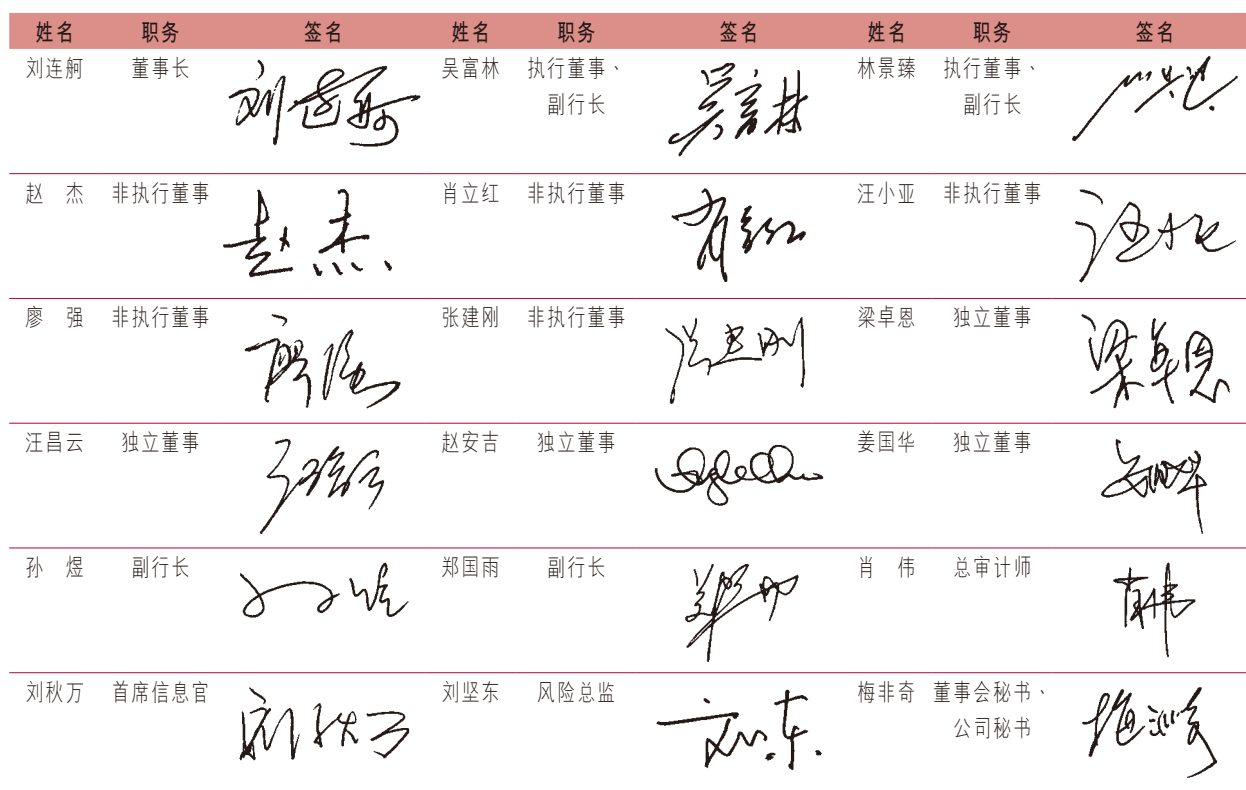 姓名 职务 签名 姓名 职务 签名 姓名 职务 签名
刘连舸 董事长 刘连舸 吴富林 执行董事、 吴富林 林景臻 执行董事、
副行长 副行长
赵 杰 非执行董事 赵杰 肖立红 非执行董事 肖立红 汪小亚 非执行董事 汪小亚
廖 强 非执行董事 廖强 张建刚 非执行董事 张建刚 梁卓恩 独立董事 梁卓恩
汪昌云 独立董事 汪昌云 赵安吉 独立董事 姜国华 独立董事
孙 煜 副行长 郑国雨 副行长 肖 伟 总审计师 肖伟
刘秋万 首席信息官 刘秋万 刘坚东 风险总监 梅非奇 董事会秘书、
公司秘书